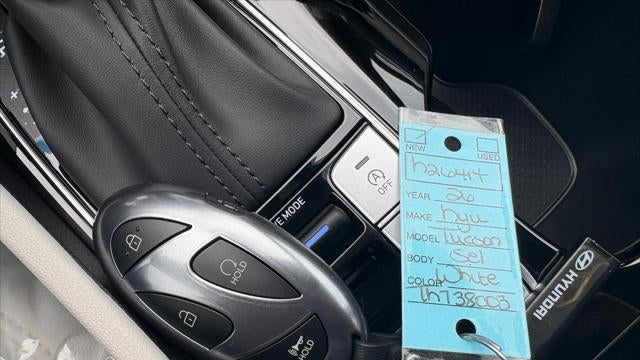 NEW
USED
h26414
YEAR 26
MAKE hyu
MODEL Tucson
BODY Sel
COLOR White
th738003
OFF
DRIVE MODE
HOLD
HOLD
HYUNDAI